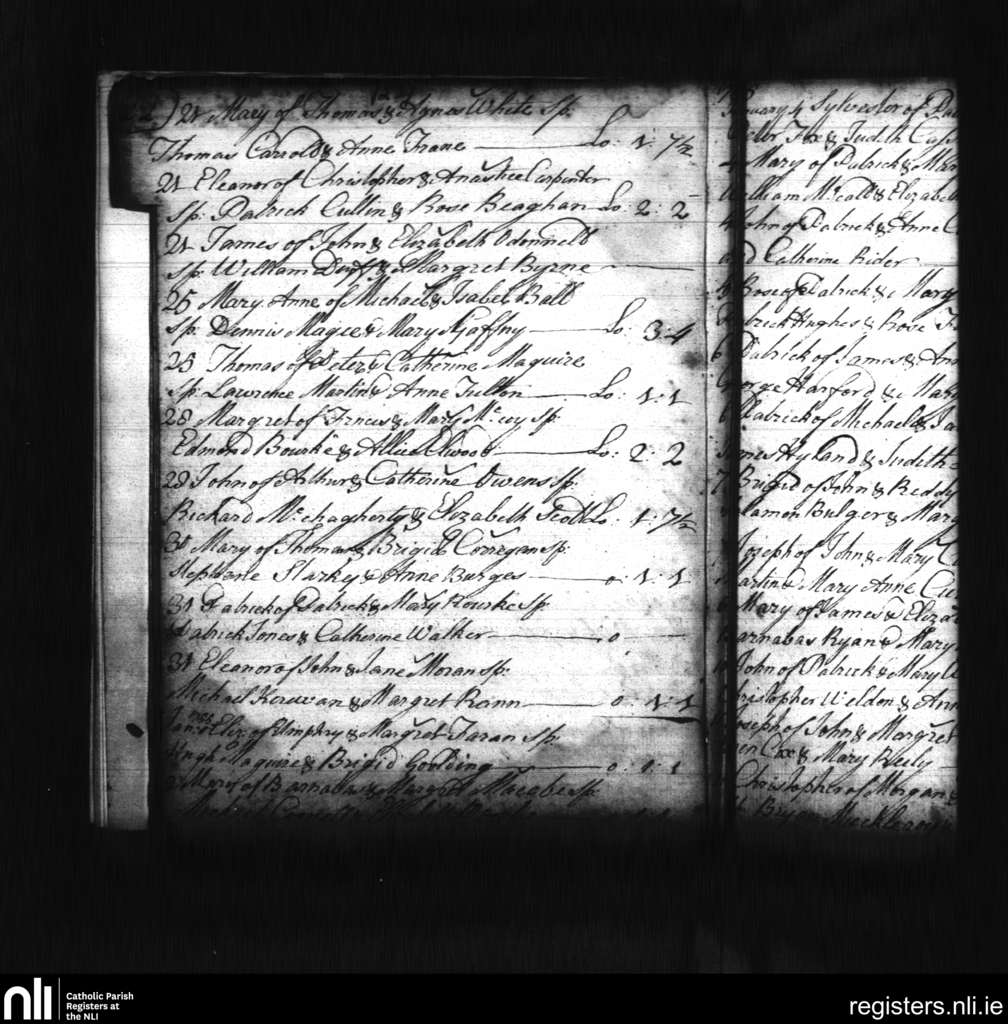 21 Mary of Thomas & Agnes White Sp:
Thomas Carrold & Anne Frane Lo: 1: 7½
21 Eleanor of Christopher & Anastice Carpinter
Sp: Patrick Cullin & Rose Beaghan Lo: 2: 2
21 James of John & Elizabeth Odonneld
Sp: William Duffy & Margret Byrne
25 Mary Anne of Michael & Isabel Ball
Sp: Dannis Magee & Mary Gaffny Lo: 3: 4
25 Thomas of Peter & Catherine Maguire
Sp: Lawrence Martin & Anne Fullon Lo: 1: 1
28 Margret of & Mary Sp:
Edmond Bourke & Allice Elwood Lo: 2: 2
29 John of Arthur & Catherine Owens Sp:
Richard & Elizabeth Scott Lo: 1: 7½
Mary of Thomas & Brigid Corregan Sp:
Stephene Starkey & Anne Burges o: 1: 1
31 Patrick of Patrick & Mary Rourke Sp:
Patrick Jones & Catherine Walker o
31 Eleanor of John & Jane Moran Sp:
Michael Kerwan & Margret Rann o: 1: 1
Eliz: of Umphry & Margret Faran Sp:
Hugh Maguire & Brigid Goulding o: 1: 1
Mary of Barnabas & Margret Macabe Sp:
4 Sylvester of
& Judith
4 Mary of Patrick & Mar
William & Elizabeth
John of Patrick & Anne C
and Catherine Rider
Rose of Patrick & Marg
Patrick Hughes & Rose
6 Patrick of James & Ann
George Harford & Mar
Patrick of Michael & Ja
James Hyland & Judith
7 Brigid of John & Reddy
Bulger & Marg
Joseph of John & Mary C
Martin & Mary Anne
Mary of James & Eliza
Barnabas Ryan & Mary
John of Patrick & Mary
Christopher Weldon & Ann
Joseph of John & Margret
Cox & Mary Reily
Christopher of Morgan &
Bryan
nli
Catholic Parish
Registers at
the NLI
registers.nli.ie